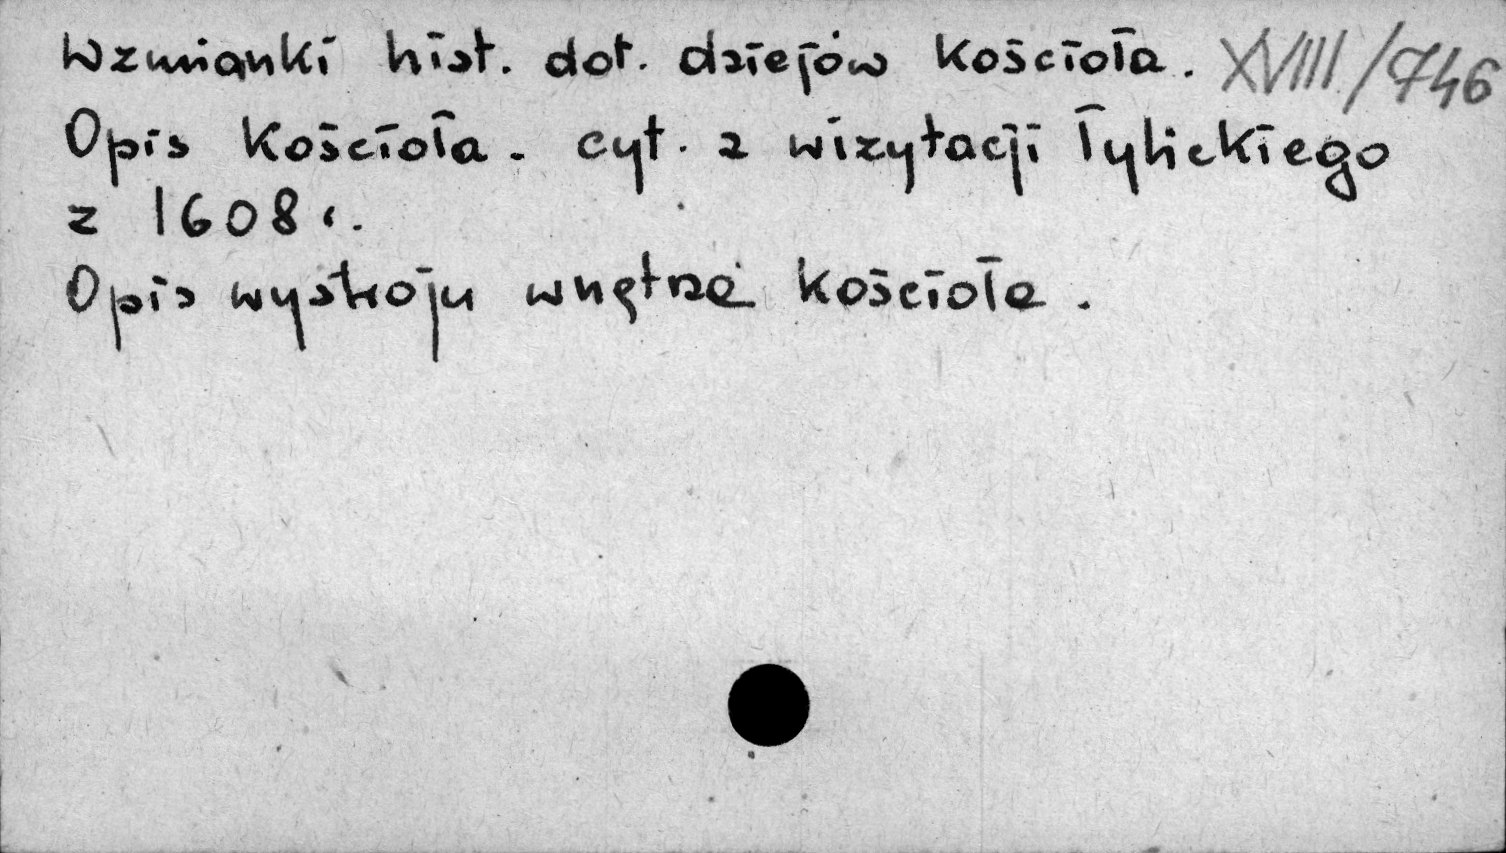 Wzmianki hist. dot. dziejów kościoła. XVIII/746
Opis kościoła. cyt. z wizytacji Tylickiego
z 1608 r.
Opis wystroju wnętrza kościoła.